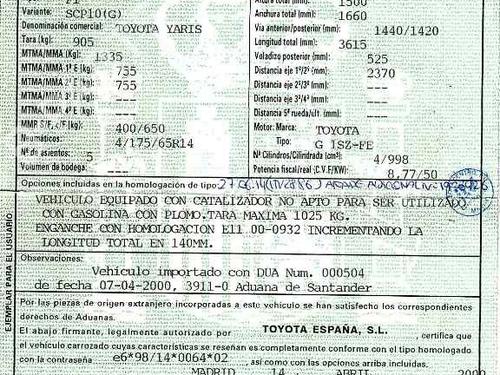 Variante: SCP10(G)
Denominación comercial: TOYOTA YARIS
Tara (kg): 905
MTMA/MMA (Kg): 1335
MTMA/MMA 1º E (kg): 755
MTMA/MMA 2º E (kg): 755
MTMA/MMA 3º E (kg): ---
MTMA/MMA 4º E (kg): ---
MMR S/F, c/F (kg): 400/650
Neumáticos: 4/175/65R14
Nº de asientos: 5
Volumen de bodega: ---
Altura total (mm): 1500
Anchura total (mm): 1660
Vía anterior/posterior (mm): 1440/1420
Longitud total (mm): 3615
Voladizo posterior (mm): 525
Distancia eje 1º/2º (mm): 2370
Distancia eje 2º/3º (mm): ---
Distancia eje 3º/4º (mm): ---
Distancia 5ª rueda/ult. (mm): ---
Motor: Marca: TOYOTA
Tipo: G ISZ-FE
Nº Cilindros/Cilindrada (cm³): 4/998
Potencia fiscal/real (C.V.F/KW): 8,77/50
Opciones incluidas en la homologación de tipo:
VEHICULO EQUIPADO CON CATALIZADOR NO APTO PARA SER UTILIZADO
CON GASOLINA CON PLOMO.TARA MAXIMA 1025 KG.
ENGANCHE CON HOMOLOGACION E11 00-0932 INCREMENTANDO LA
LONGITUD TOTAL EN 140MM.
EJEMPLAR PARA EL USUARIO
Observaciones:
Vehículo importado con DUA Num. 000504
de fecha 07-04-2000, 3911-0 Aduana de Santander
Por las piezas de origen extranjero incorporadas a este vehículo se han satisfecho los correspondientes
derechos de Aduanas.
El abajo firmante, legalmente autorizado por TOYOTA ESPAÑA, S.L. , certifica que
el vehículo carrozado cuyas características se reseñan es completamente conforme con el tipo homologado
con la contraseña e6*98/14*0064*02 , así como con las opciones arriba incluidas.
MADRID 14 ABRIL